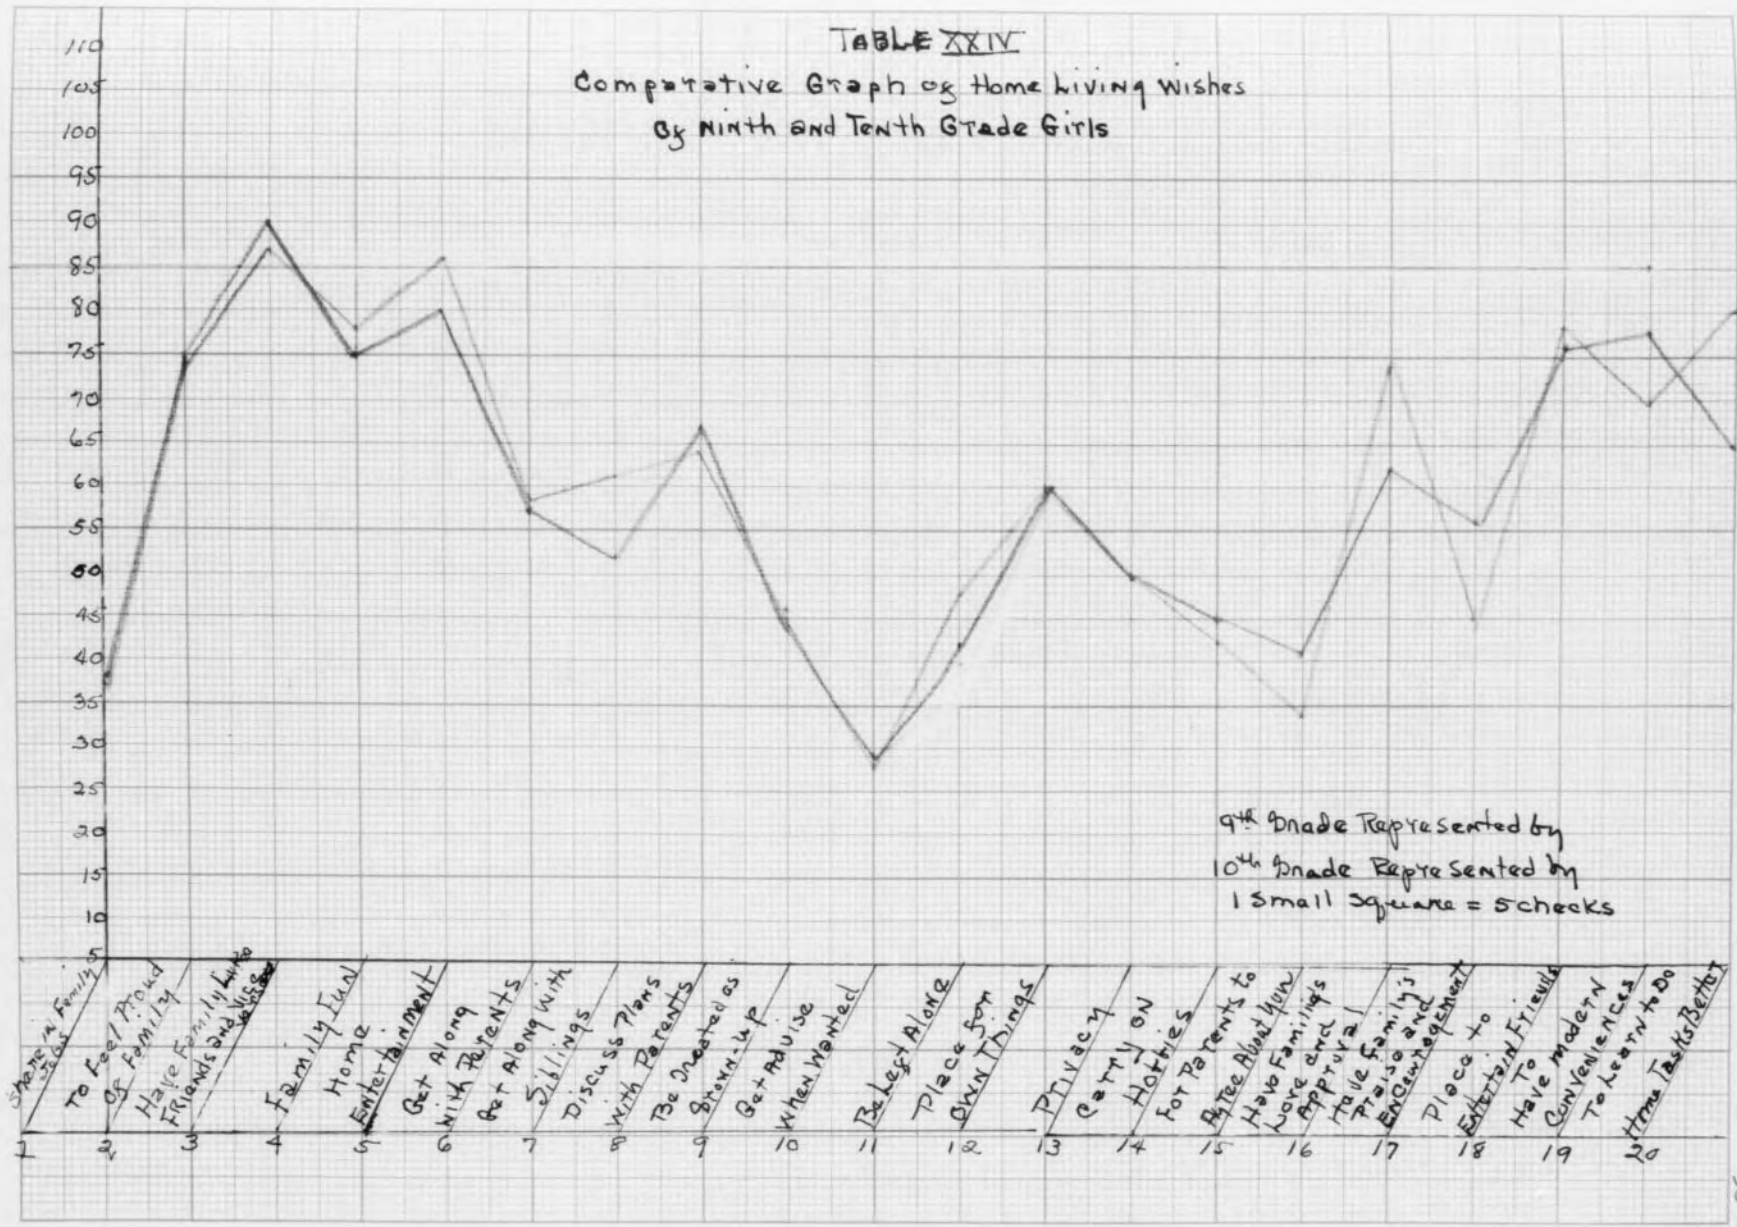 TABLE XXIV
Comparative Graph of Home Living Wishes
Of Ninth and Tenth Grade Girls
110
105
100
95
90
85
80
75
70
65
60
55
50
45
40
35
30
25
20
15
10
5
9th Grade Represented by
10th Grade Represented by
1 small square = 5 checks
Share in Family
Jobs
To Feel Proud
Of Family
Have Family Like
Friends and Vice
Versa
Family Fun
Home
Entertainment
Get Along
With Parents
Get Along With
Siblings
Discuss Plans
With Parents
Be Treated as
Grown-up
Get Advise
When Wanted
Be Left Alone
Place for
Own Things
Privacy
Carry on
Hobbies
For Parents to
Agree About You
Have Family's
Love and
Approval
Have Family's
Praise and
Encouragement
Place to
Entertain Friends
To
Have Modern
Conveniences
To Learn to Do
Home Tasks Better
1 2 3 4 5 6 7 8 9 10 11 12 13 14 15 16 17 18 19 20